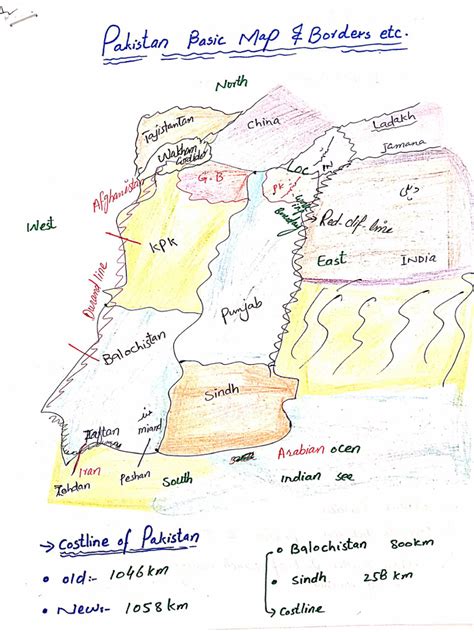 Pakistan Basic Map & Borders etc.
North
Tajistantan
China
Ladakh
Wakhan
Coridor
Jamana
LOC
G.B
PK
Afghanistan
دہلی
Red-clif-line
West
KPK
East
INDIA
Durand line
Punjab
Balochistan
Sindh
Taftan
Iran
Peshan
Zehdan
South
Arabian ocen
Indian see
→ Costline of Pakistan
• old:- 1046 km
• New:- 1058 km
• Balochistan 800km
• Sindh 258 km
→ Costline